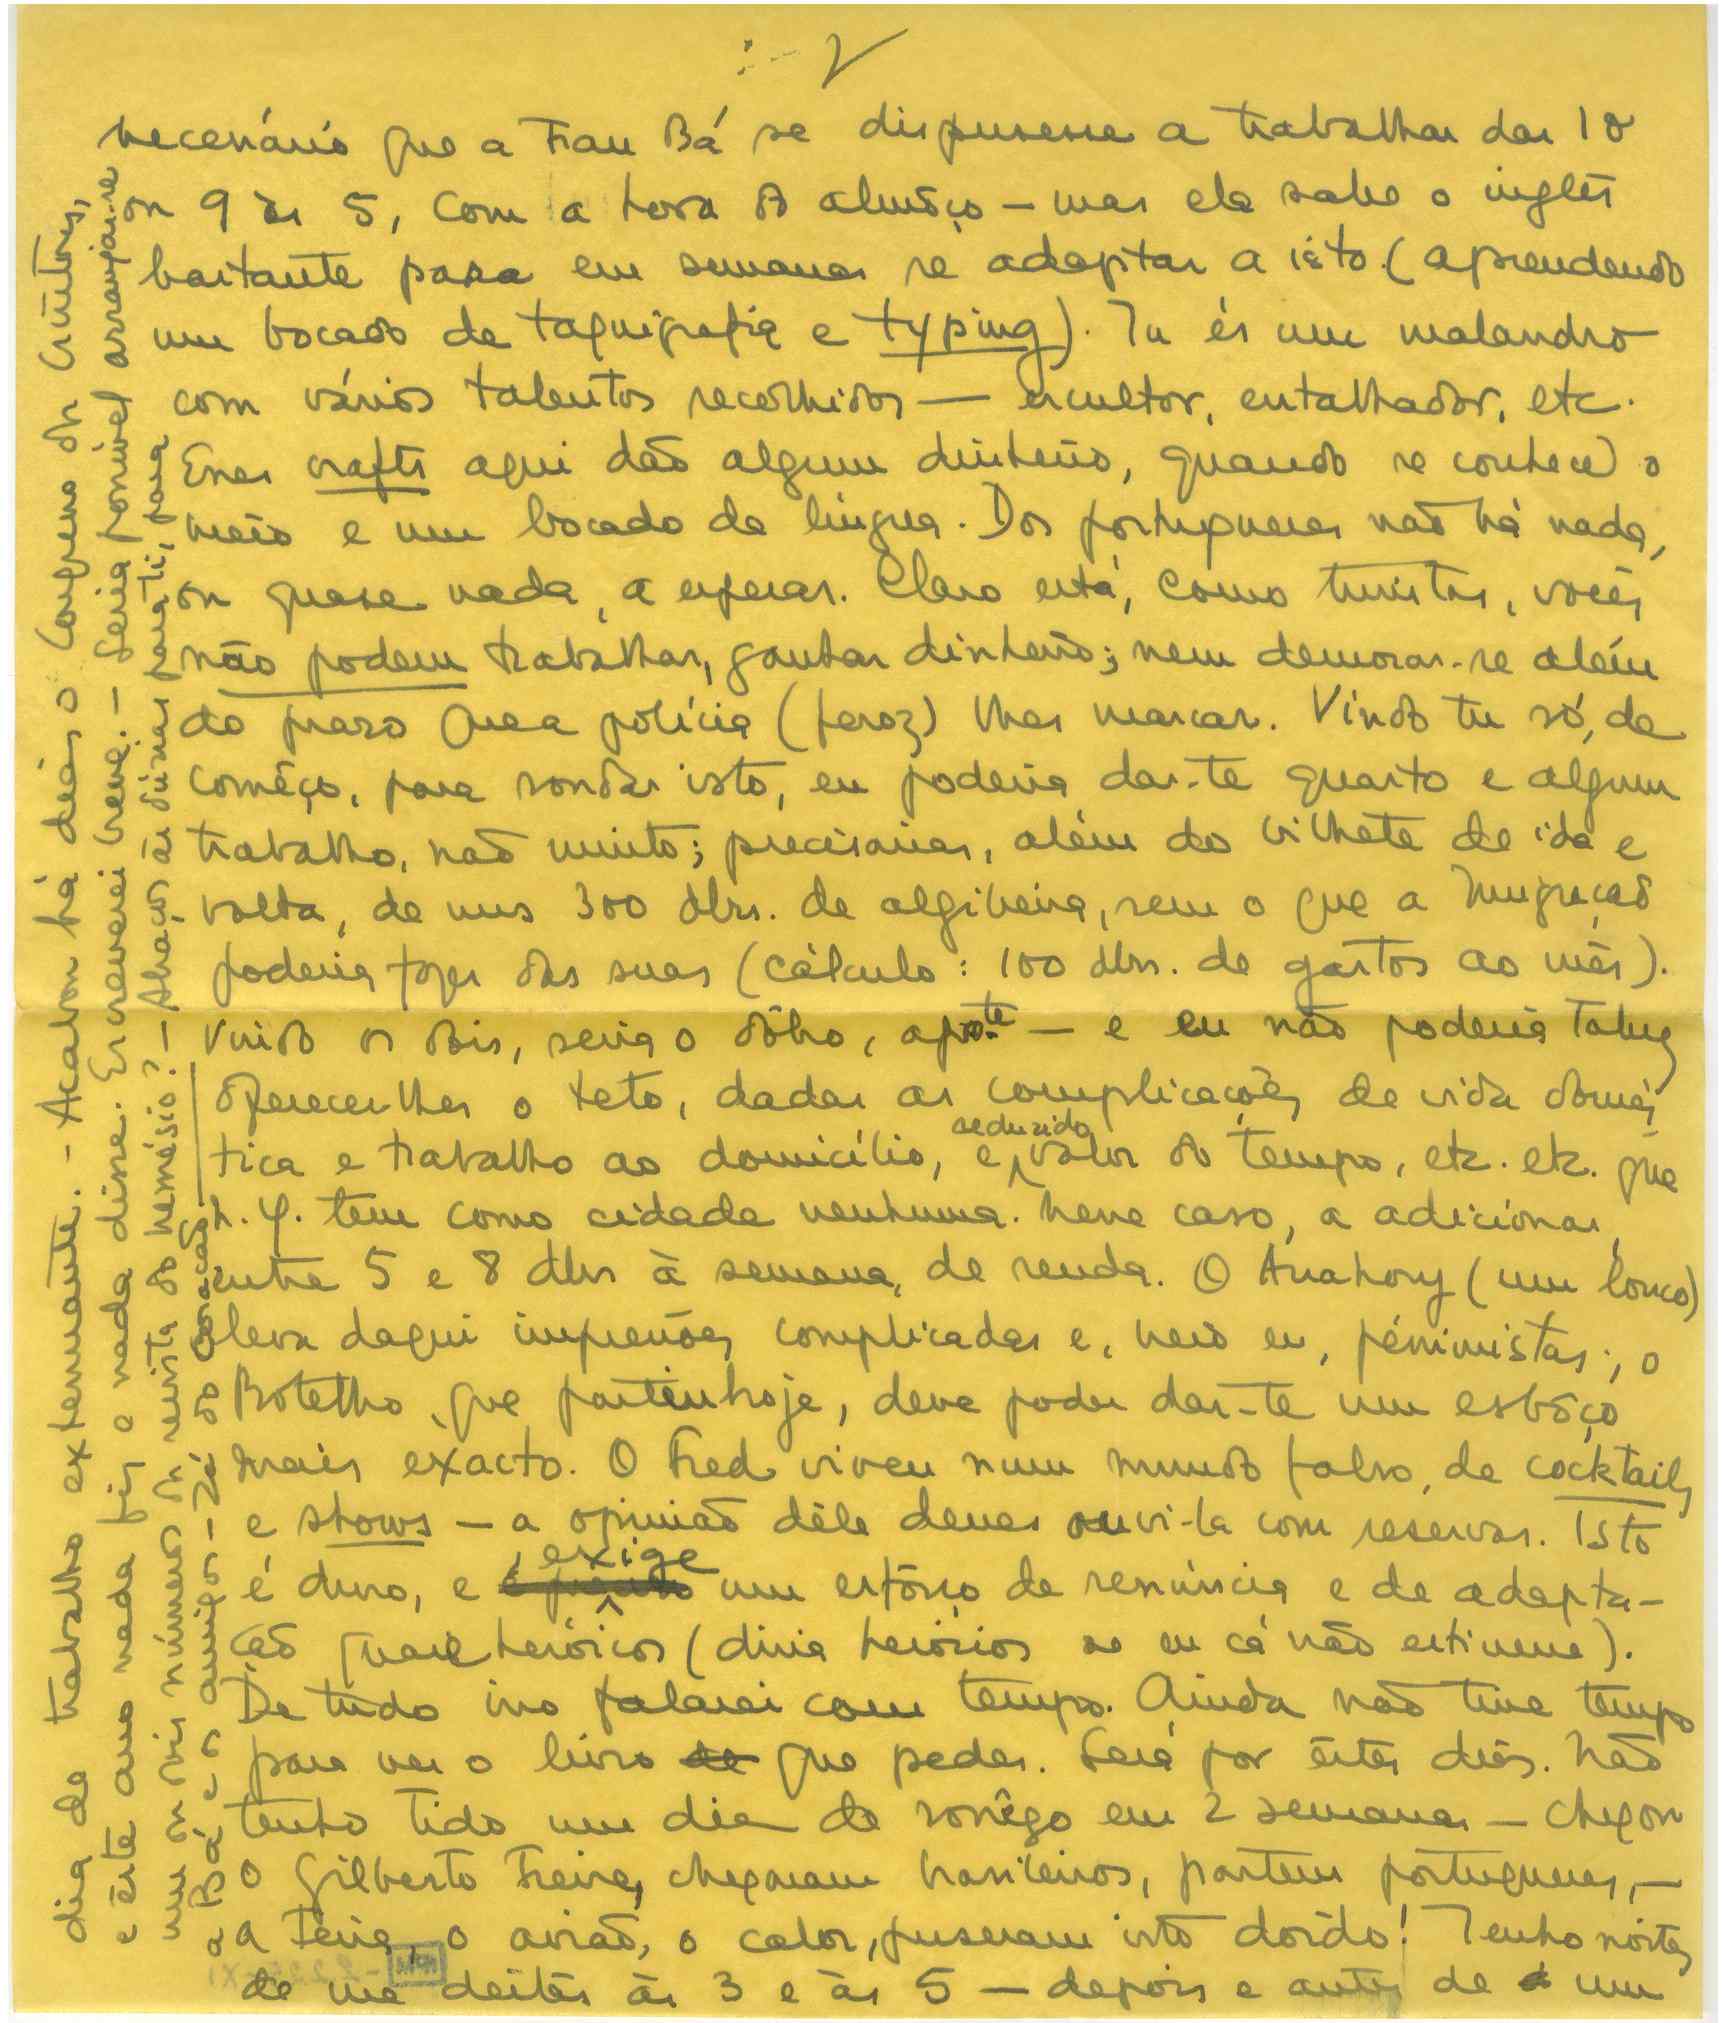 :- 2
necessário que a Frau Bá se dispusesse a trabalhar das 10
ou 9 às 5, com a hora do almôço — mas ela sabe o inglês
bastante para em semanas se adaptar a isto (aprendendo
um bocado de taquigrafia e typing). Tu és um malandro
com vários talentos recolhidos — escultor, entalhador, etc.
Esses crafts aqui dão algum dinheiro, quando se conhece o
meio e um bocado da língua. Dos portugueses não há nada,
ou quase nada, a esperar. Claro está, como turistas, vocês
não podem trabalhar, ganhar dinheiro; nem demorar-se além
do prazo que a polícia (feroz) lhes marcar. Vindo tu só, de
comêço, para sondar isto, eu poderia dar-te quarto e algum
trabalho, não muito; precisarias, além do bilhete de ida e
volta, de uns 300 dlrs. de algibeira, sem o que a Imigração
poderia fazer das suas (cálculo: 100 dlrs. de gastos ao mês).
Vindo os dois, seria o dôbro, aprox.te — e eu não poderia talvez
oferecer-lhes o teto, dadas as complicações de vida domés
tica e trabalho ao domicílio, e reduzido valor do tempo, etc. etc. que
N. Y. tem como cidade nenhuma. Nesse caso, a adicionar,
entre 5 e 8 dlrs à semana, de renda. O Anahory (um louco)
leva daqui impressões complicadas e, creio eu, péssimistas; o
Botelho, que parte hoje, deve poder dar-te um esbôço
mais exacto. O Fred viveu num mundo falso, de cocktails
e shows — a opinião dêle deves ouvi-la com reservas. Isto
é duro, e exige um esfôrço de renúncia e de adapta-
ção quase heróicos (diria heróicos se eu cá não estivesse).
De tudo isso falarei com tempo. Ainda não tive tempo
para ver o livro de que pedes. Será por êstes dias. Não
tenho tido um dia de sossêgo em 2 semanas — chegou
o Gilberto Freire, chegaram brasileiros, partem portugueses, —
a Feira, o avião, o calor, puseram isto doido! Tenho noites
de me deitar às 3 e às 5 — depois e antes de um
dia de trabalho extenuante. - Acabou há dias o Congresso dos Escritores,
e êste ano nada fiz e nada disse. Escreverei breve. - Seria possível arranjar-se
um ou dois números da revista do Nemésio? - Abraços às dúzias para ti, para
a Bá e os amigos - Zé do coração.